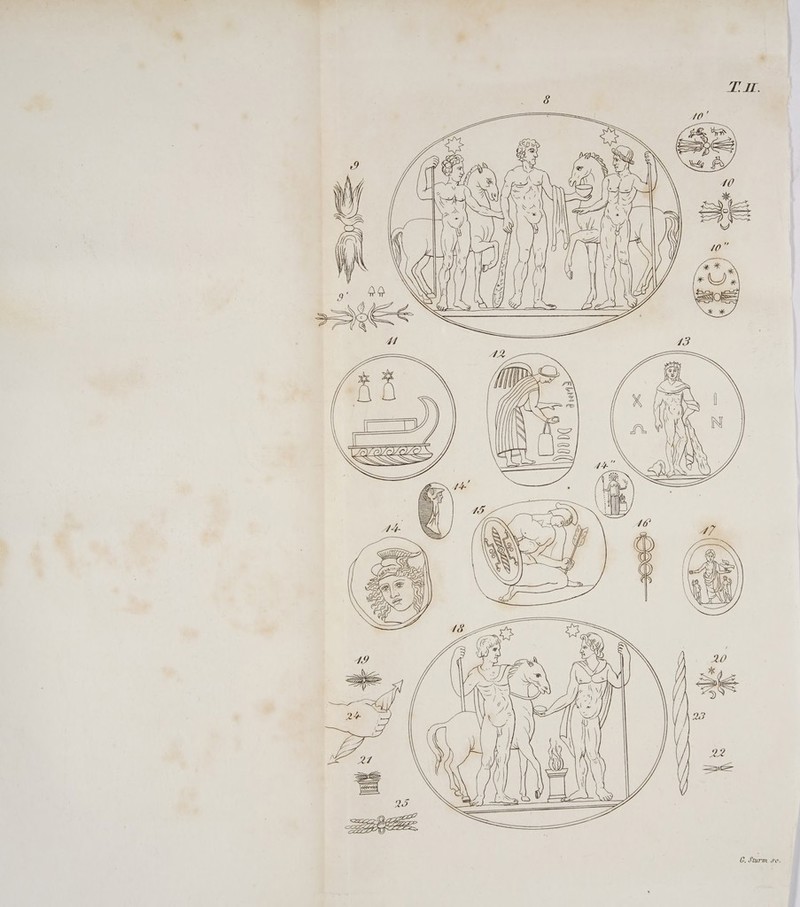 T. II.
8
10'
9
10
10"
9'
11
12
13
X I
N
14"
14'
15
14
16
17
18
19
20
24
23
21
22
25
C. Sturm sc.